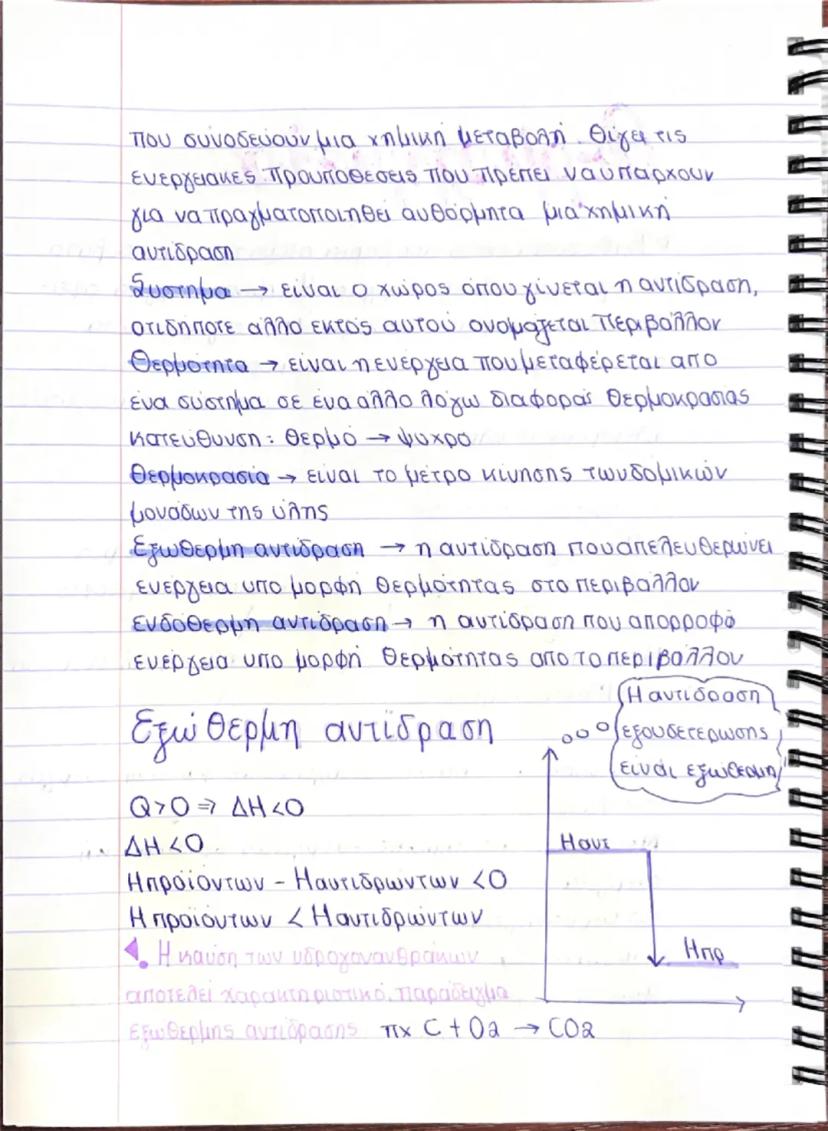 που συνοδεύουν μια χημική μεταβολή. Θίγει τις
ενεργειακές προυποθέσεις που πρέπει να υπάρχουν
για να πραγματοποιηθεί αυθόρμητα μια χημική
αντίδραση
Σύστημα → είναι ο χώρος όπου γίνεται η αντίδραση,
οτιδήποτε άλλο εκτός αυτού ονομάζεται περιβάλλον
Θερμότητα → είναι η ενέργεια που μεταφέρεται από
ένα σύστημα σε ένα άλλο λόγω διαφοράς θερμοκρασίας
κατεύθυνση: θερμό → ψυχρό
Θερμοκρασία → είναι το μέτρο κίνησης των δομικών
μονάδων της ύλης
Εξώθερμη αντίδραση → η αντίδραση που απελευθερώνει
ενέργεια υπο μορφή θερμότητας στο περιβάλλον
ενδόθερμη αντίδραση → η αντίδραση που απορροφά
ενέργεια υπο μορφή θερμότητας από το περιβάλλον
Η αντίδραση
εξουδετέρωσης
είναι εξώθερμη
Εξώθερμη αντίδραση
Q>0 ⇒ ΔH<0
ΔH<0
Ηπροϊόντων - Ηαντιδρώντων <0
Ηπροϊόντων < Ηαντιδρώντων
Ηαντ
Ηπρ
Η καύση των υδρογονανθράκων
αποτελεί χαρακτηριστικό παράδειγμα
εξώθερμης αντίδρασης πχ C + O2 → CO2